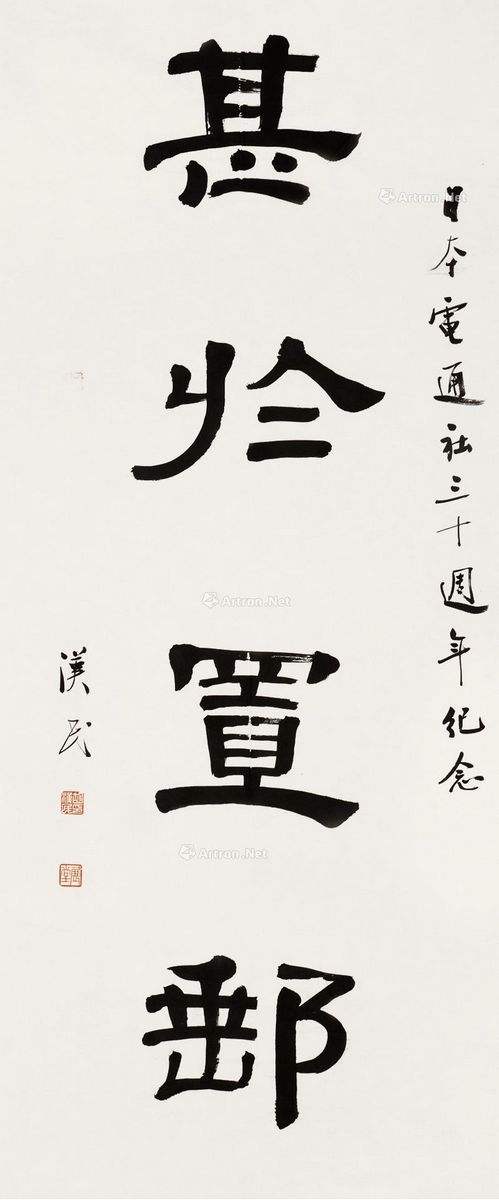 日本電通社三十週年紀念
甚於置郵
漢民
Artron.Net
Artron.Net
Artron.Net